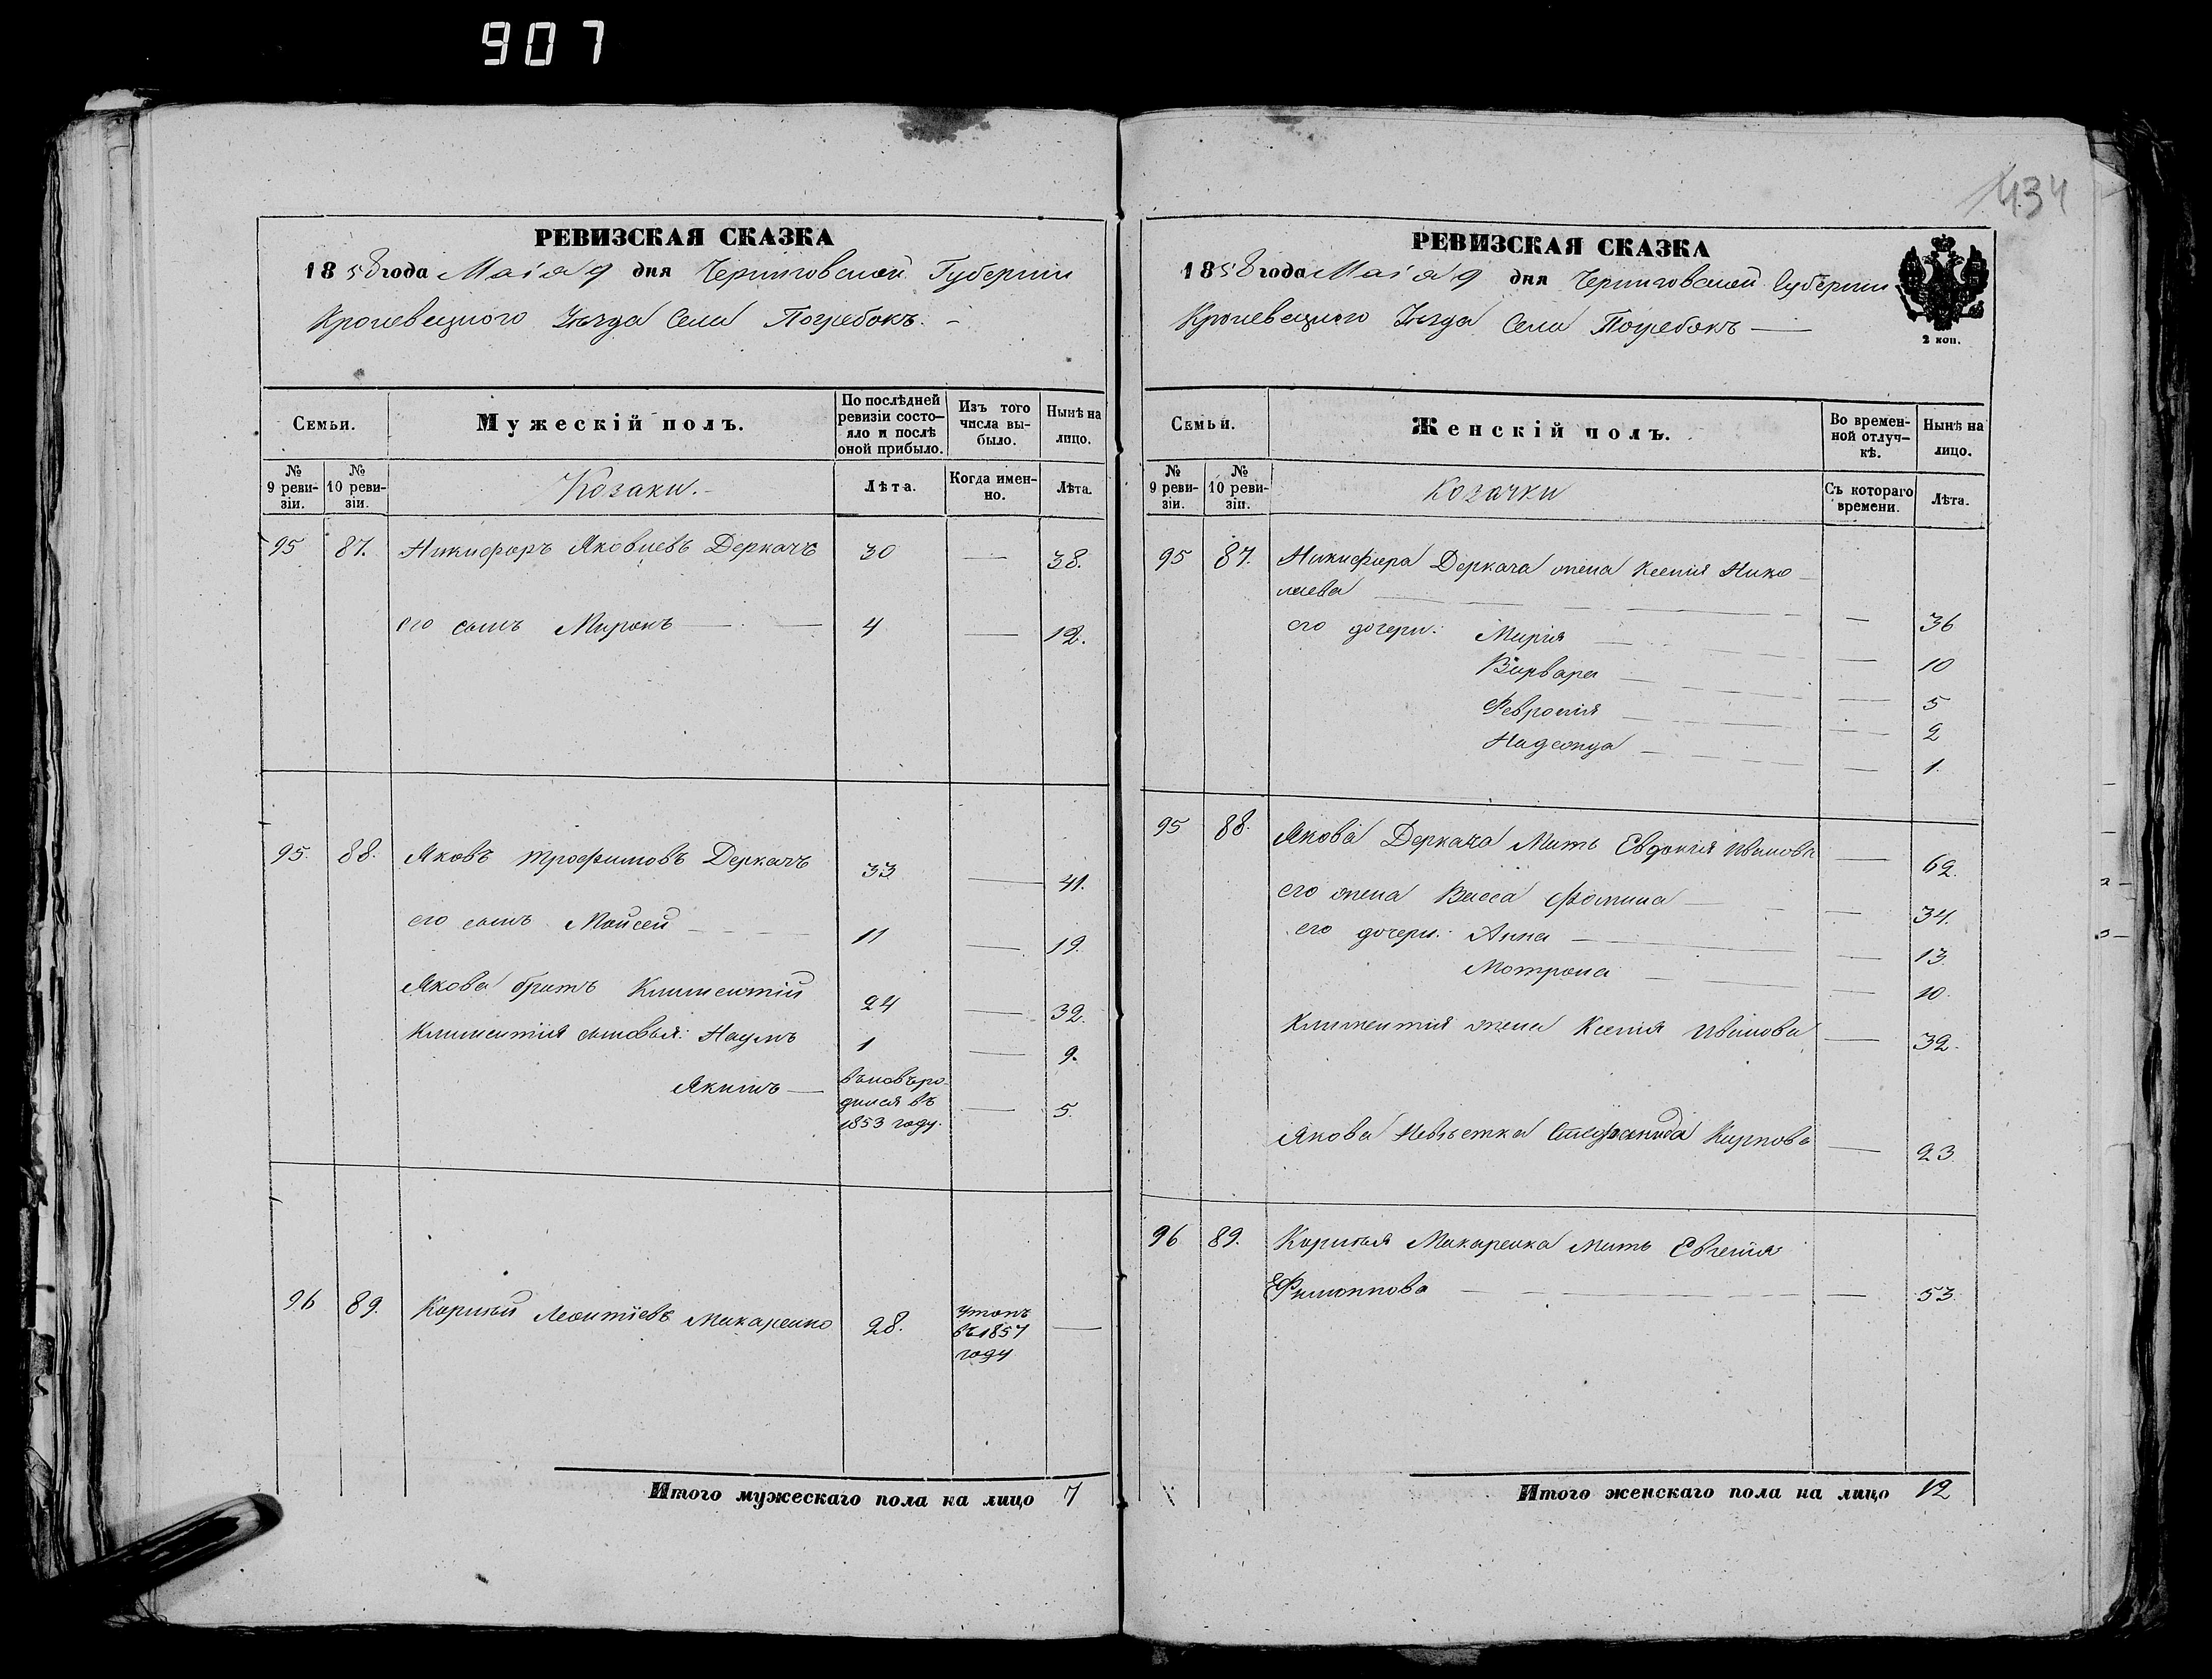 907
434
РЕВИЗСКАЯ СКАЗКА
1858 года Маія 9 дня Черниговской Губерніи
Кролевецкого Уѣзда Села Погребокъ. -
Семьи.
Мужескій полъ.
По послѣдней ревизіи состо-яло и послѣ оной прибыло.
Изъ того числа вы-было.
Нынѣ на лицо.
№ 9 реви-зіи.
№ 10 реви-зіи.
Козаки. -
Лѣта.
Когда имен-но.
Лѣта.
95 87. Никифоръ Яковлевъ Деркачъ 30 — 38.
его сынъ Миронъ — 4 — 12.
95. 88. Яковъ Трофимовъ Деркачъ 33 — 41.
его сынъ Мойсей — 11 — 19.
Якова братъ Климентій 24 — 32.
Климентія сыновья: Наумъ 1 — 9.
Якимъ — вновьро-
дился въ — 5.
1853 году.
96 89. Корнѣй Леонтіевъ Макаренко 28. утопъ
въ 1857 —
году
Итого мужескаго пола на лицо 7
РЕВИЗСКАЯ СКАЗКА
1858 года Маія 9 дня Черниговской Губерніи
Кролевецкого Уѣзда Села Погребокъ —
2 коп.
Семьи.
Женскій полъ.
Во времен-ной отлуч-кѣ.
Нынѣ на лицо.
№ 9 реви-зіи.
№ 10 реви-зіи.
Козачки
Съ котораго времени.
Лѣта.
95 87. Никифора Деркача жена Ксенія Нико-
лаева — — 36
его дочери: Марія — — 10
Варвара — — 5
Февронія — — 2
Надежда — — 1.
95 88. Якова Деркача Мать Евдокія Иванова — 62.
его жена Васса Фомина — — 34.
его дочери: Анна — — 13
Мотрона — — 10.
Климентія жена Ксенія Иванова — 32.
Якова Невѣстка Стефанида Карпова — 23
96 89. Корнѣя Макаренка мать Евгенія
Филиппова — — 53
Итого женскаго пола на лицо 12